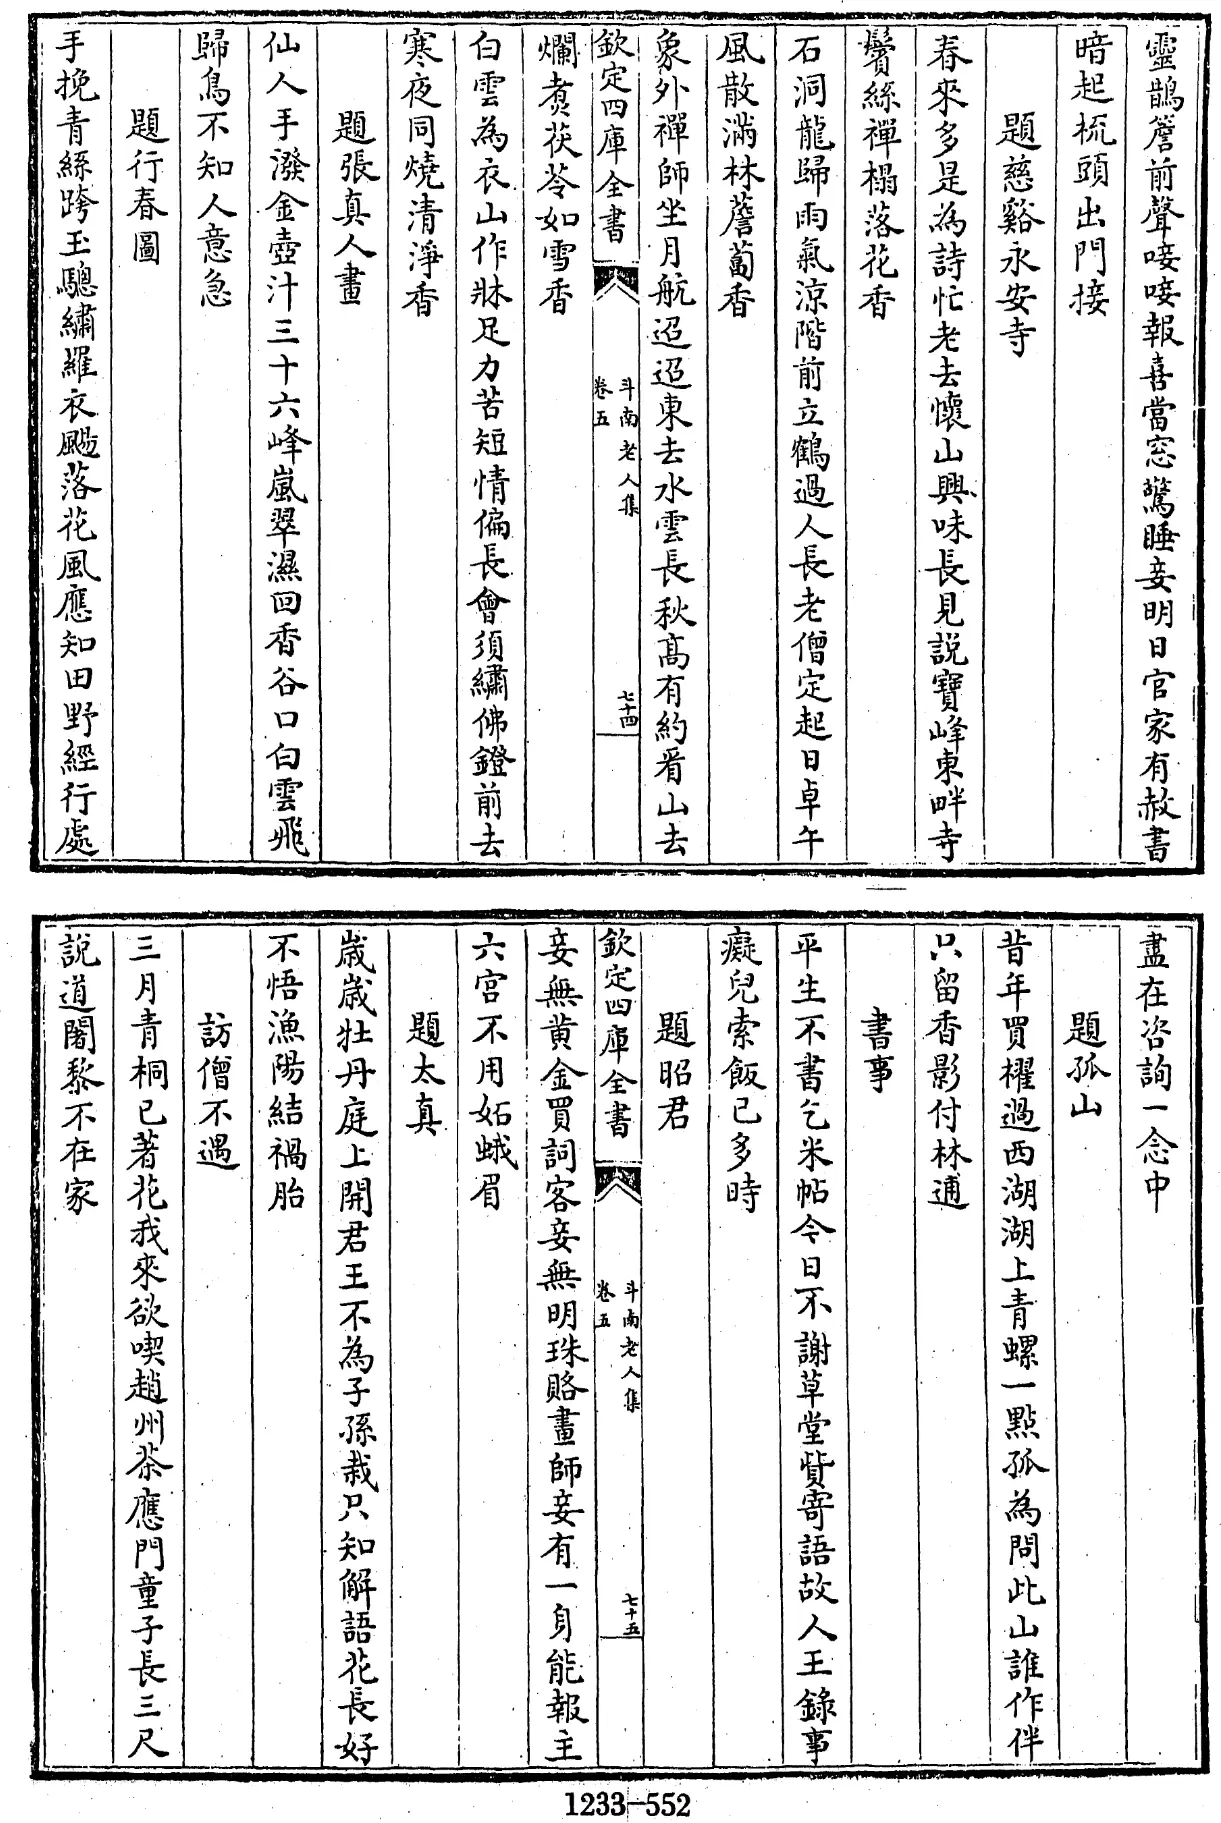 靈鵲簷前聲唼唼報喜當窓驚睡妾明日官家有赦書
暗起梳頭出門接
題慈谿永安寺
春來多是為詩忙老去懷山興味長見説寶峰東畔寺
鬢絲禪榻落花香
石洞龍歸雨氣涼階前立鶴過人長老僧定起日卓午
風散滿林薝蔔香
象外禪師坐月航迢迢東去水雲長秋髙有約看山去
欽定四庫全書
斗南老人集
卷五
七十四
爛煑茯苓如雪香
白雲為衣山作牀足力苦短情偏長會須繡佛鐙前去
寒夜同燒清淨香
題張真人畫
仙人手潑金壺汁三十六峰嵐翠濕回香谷口白雲飛
歸鳥不知人意急
題行春圖
手挽青絲跨玉驄繡羅衣颺落花風應知田野經行處
盡在咨詢一念中
題孤山
昔年買櫂過西湖湖上青螺一點孤為問此山誰作伴
只留香影付林逋
書事
平生不書乞米帖今日不謝草堂貲寄語故人王錄事
癡兒索飯已多時
題昭君
欽定四庫全書
斗南老人集
卷五
七十五
妾無黄金買詞客妾無明珠賂畫師妾有一身能報主
六宫不用妬蛾眉
題太真
歳歳牡丹庭上開君王不為子孫栽只知解語花長好
不悟漁陽結禍胎
訪僧不遇
三月青桐已著花我來欲喫趙州茶應門童子長三尺
説道闍黎不在家
1233-552